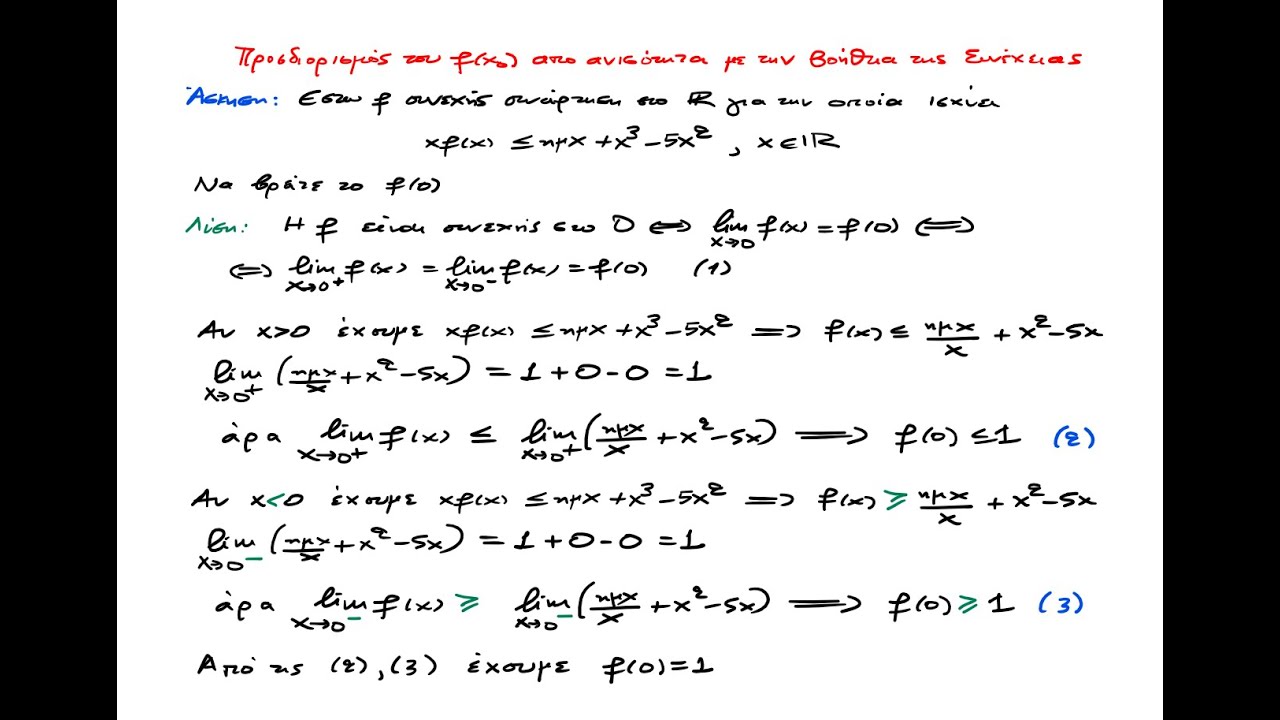 Προσδιορισμός του f(x₀) απο ανισότητα με την βοήθεια της Συνέχειας
Άσκηση: Εστω f συνεχής συνάρτηση στο ℝ για την οποία ισχύει
xf(x) ≤ ημx + x³ - 5x² , x ∈ ℝ
Να βρείτε το f(0)
Λύση: Η f είναι συνεχής στο 0 ⟺ lim_{x→0} f(x) = f(0) ⟺
⟺ lim_{x→0⁺} f(x) = lim_{x→0⁻} f(x) = f(0) (1)
Αν x>0 έχουμε xf(x) ≤ ημx + x³ - 5x² ⟹ f(x) ≤ ημx/x + x² - 5x
lim_{x→0⁺} (ημx/x + x² - 5x) = 1 + 0 - 0 = 1
άρα lim_{x→0⁺} f(x) ≤ lim_{x→0⁺} (ημx/x + x² - 5x) ⟹ f(0) ≤ 1 (2)
Αν x<0 έχουμε xf(x) ≤ ημx + x³ - 5x² ⟹ f(x) ≥ ημx/x + x² - 5x
lim_{x→0⁻} (ημx/x + x² - 5x) = 1 + 0 - 0 = 1
άρα lim_{x→0⁻} f(x) ≥ lim_{x→0⁻} (ημx/x + x² - 5x) ⟹ f(0) ≥ 1 (3)
Από της (2), (3) έχουμε f(0) = 1